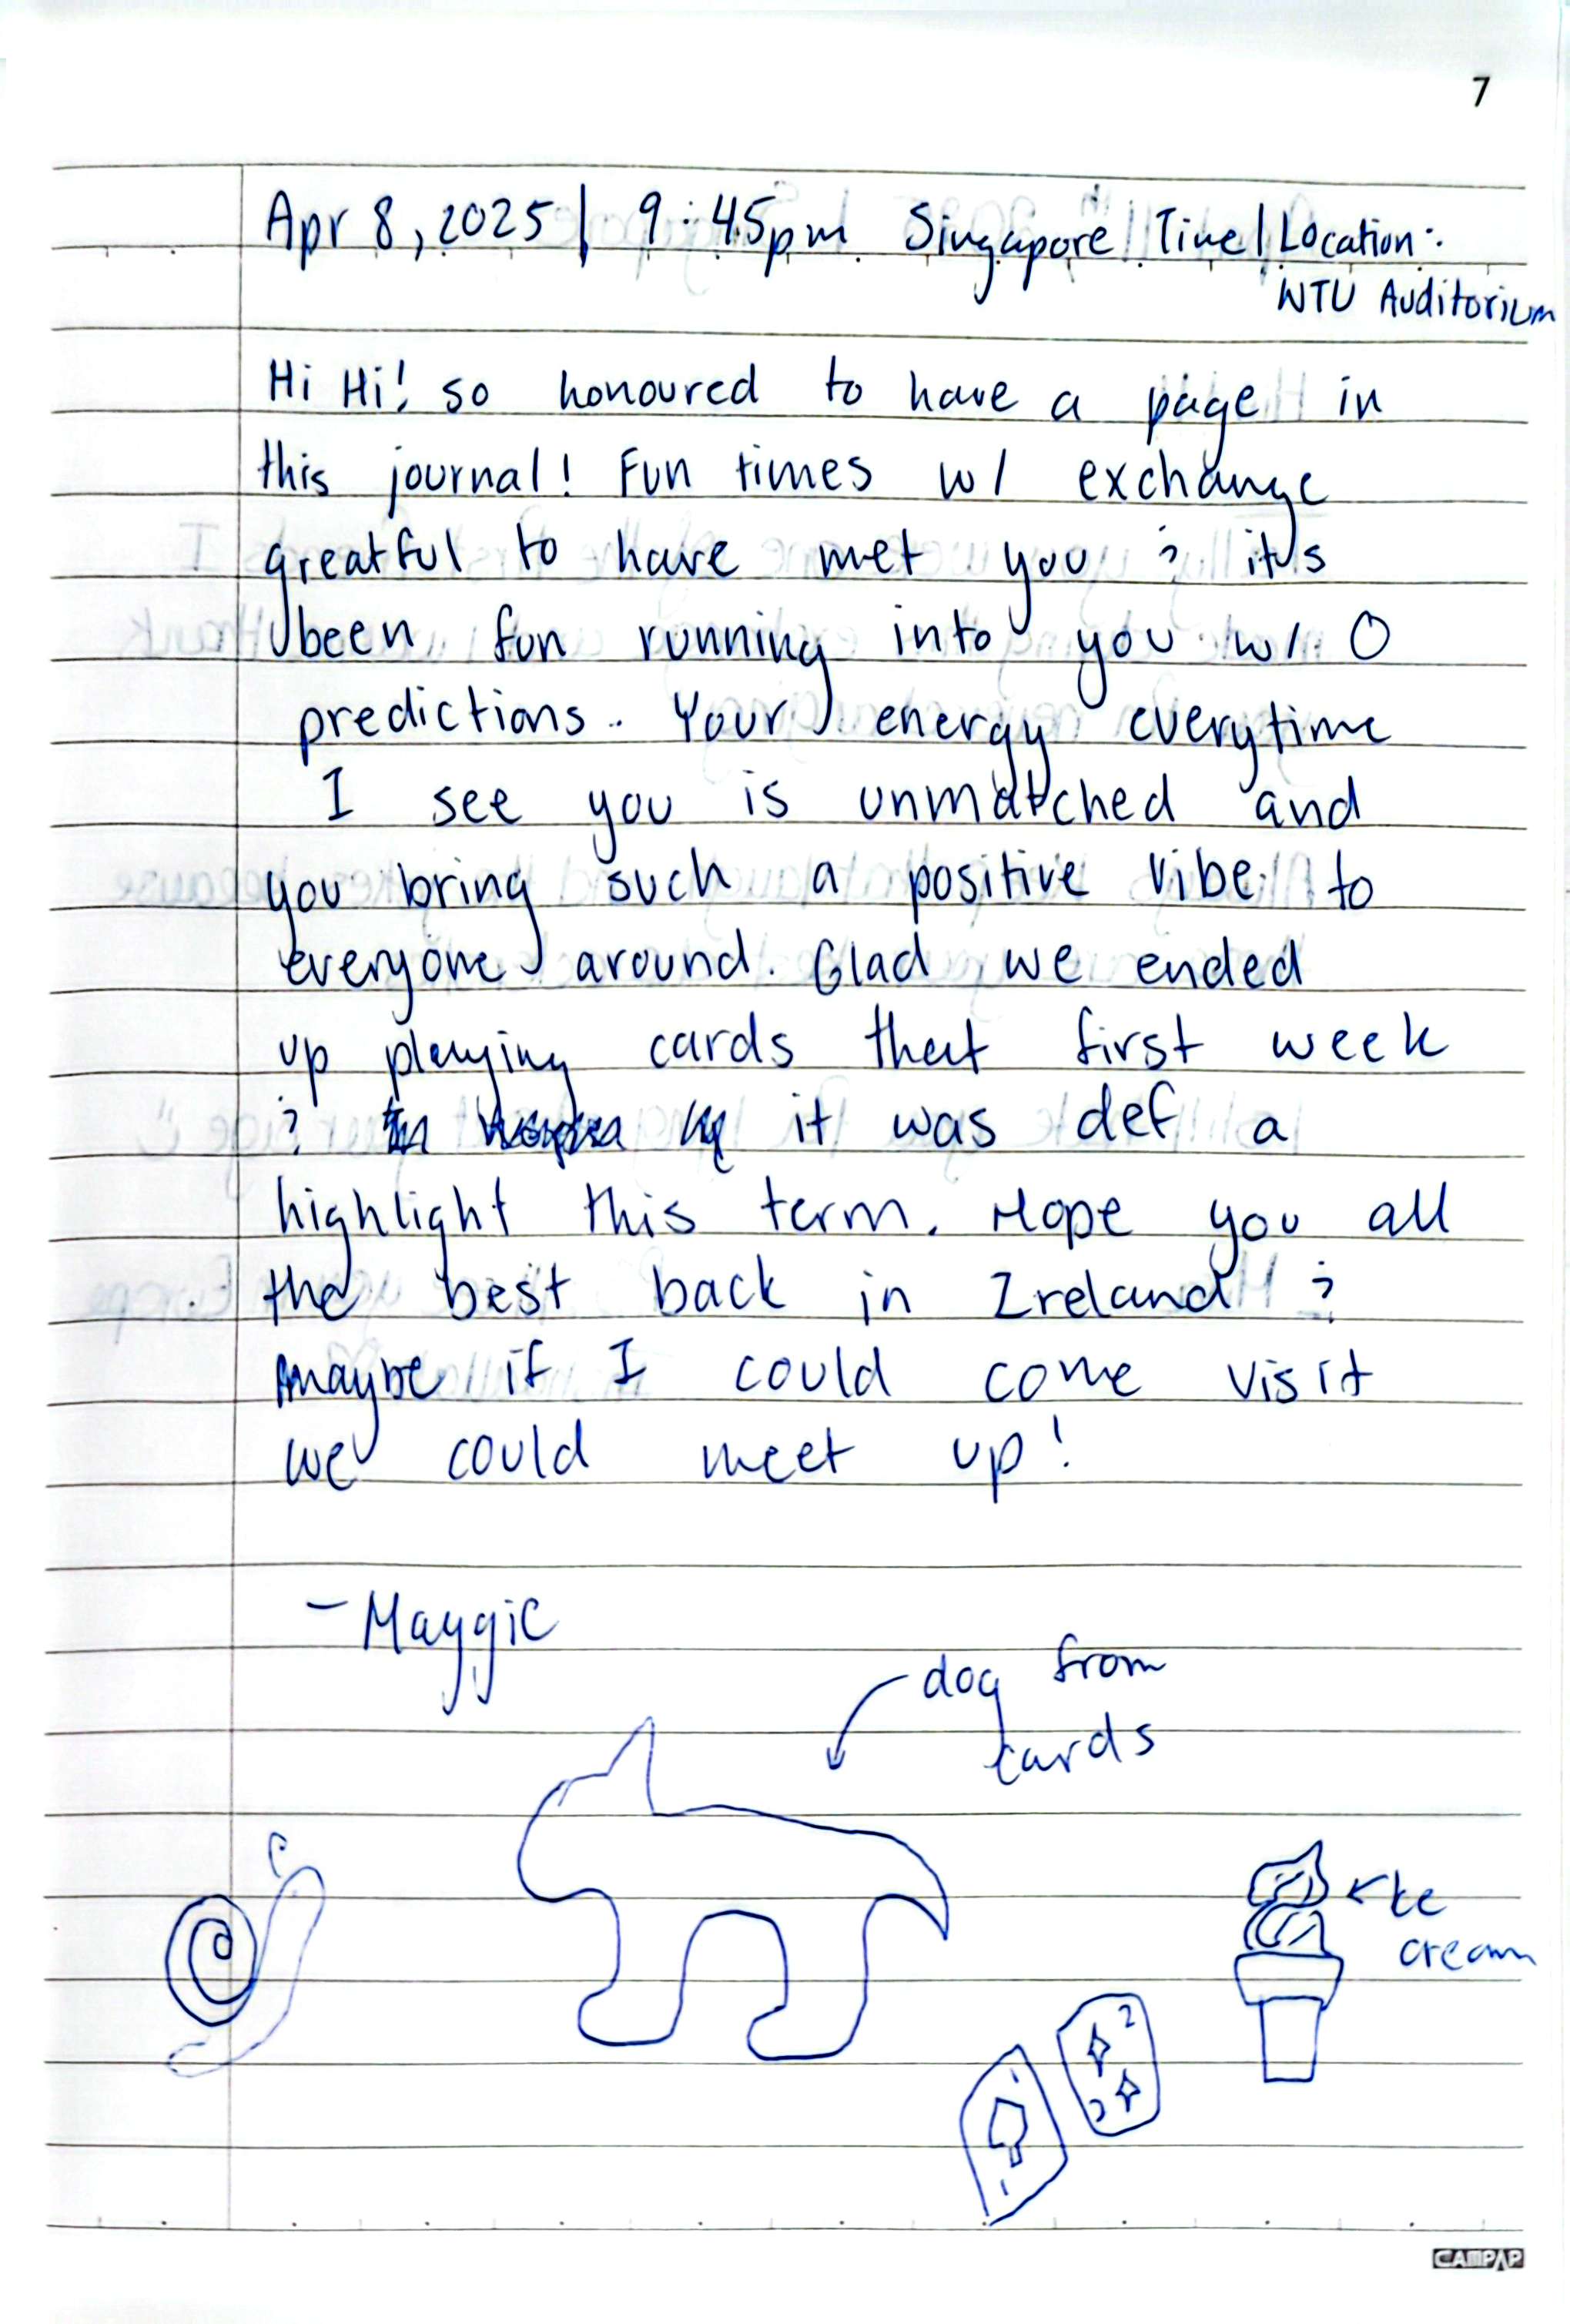 7
Apr 8, 2025 | 9:45pm Singapore | Time | Location:
NTU Auditorium
Hi Hi! so honoured to have a page in
this journal! Fun times w/ exchange
greatful to have met you & it's
been fun running into you w/ 0
predictions. Your energy everytime
I see you is unmatched and
you bring such a positive vibe to
everyone around. Glad we ended
up playing cards that first week
& it was def a
highlight this term. Hope you all
the best back in Ireland &
maybe if I could come visit
we could meet up!
- Maygic
dog from
cards
Ice
cream
2
2
CAMPAP